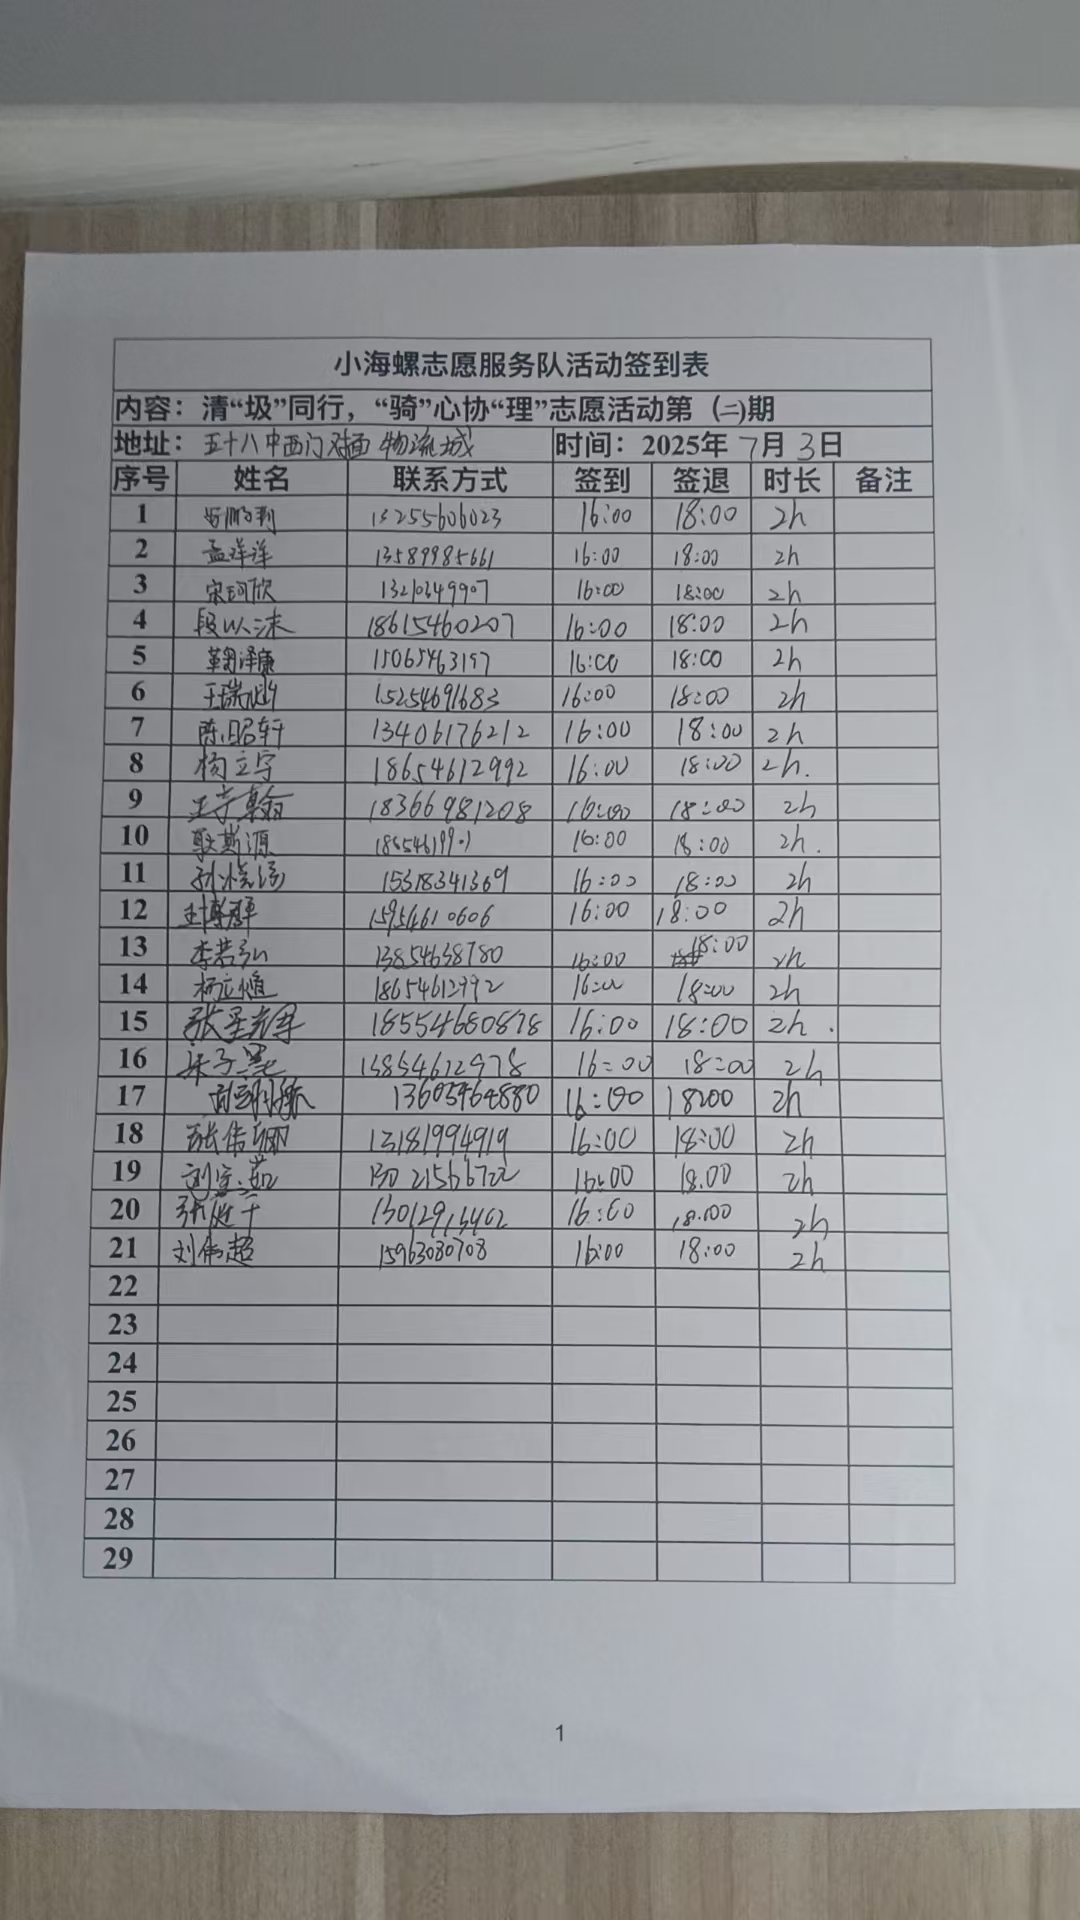 小海螺志愿服务队活动签到表
内容：清“圾”同行，“骑”心协“理”志愿活动第（二)期
地址：五十八中西门对面 物流城 时间：2025年 7月 3日
序号 姓名 联系方式 签到 签退 时长 备注
1 13255606023 16:00 18:00 2h
2 孟洋洋 13589985661 16:00 18:00 2h
3 宋珂欣 16:00 18:00 2h
4 段以沫 18615460207 16:00 18:00 2h
5 鞠泽康 15065463197 16:00 18:00 2h
6 15254691683 16:00 18:00 2h
7 陈昭轩 13406176212 16:00 18:00 2h
8 杨立宇 18654612992 16:00 18:00 2h.
9 18366981208 16:00 18:00 2h
10 耿斯源 16:00 18:00 2h.
11 15318341369 16:00 18:00 2h
12 15954610606 16:00 18:00 2h
13 李若弘 13854638780 16:00 18:00 2h
14 18654612992 16:00 18:00 2h
15 18554680878 16:00 18:00 2h.
16 13854612978 16:00 18:00 2h
17 16:00 18:00 2h
18 13181994919 16:00 18:00 2h
19 16:00 18.00 2h
20 16:00 18:00 2h
21 刘伟超 15963030708 16:00 18:00 2h
22
23
24
25
26
27
28
29
1